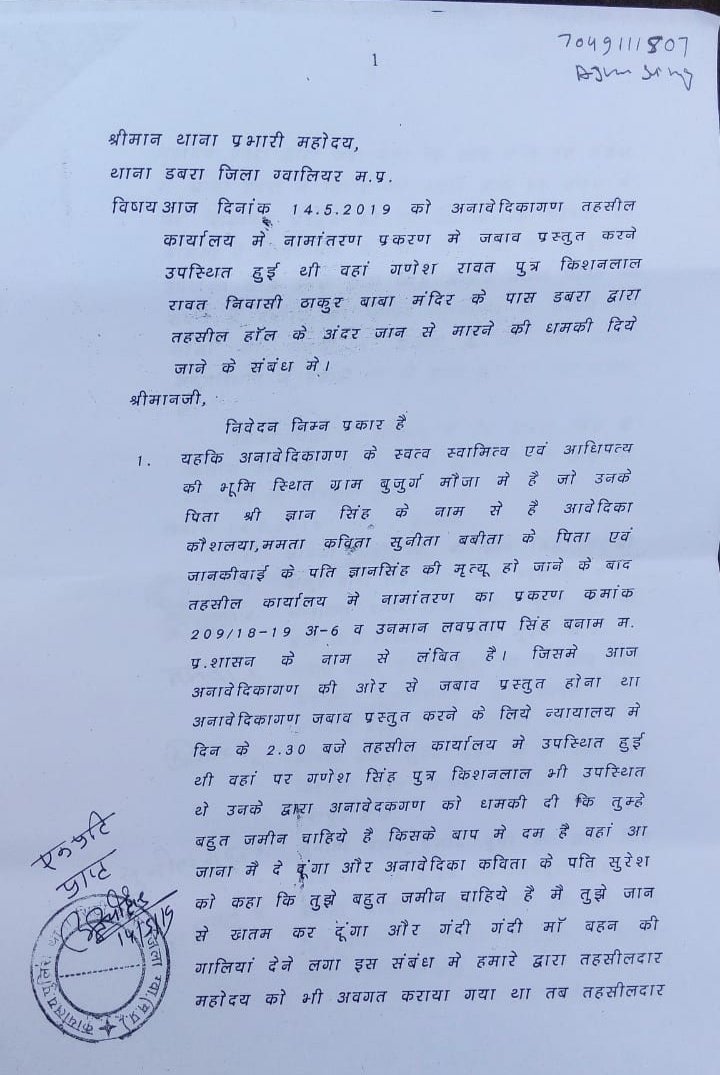 7049111807
1
श्रीमान थाना प्रभारी महोदय,
थाना डबरा जिला ग्वालियर म.प्र.
विषय आज दिनांक 14.5.2019 को अनावेदिकागण तहसील
कार्यालय मे नामांतरण प्रकरण मे जबाव प्रस्तुत करने
उपस्थित हुई थी वहां गणेश रावत पुत्र किशनलाल
रावत निवासी ठाकुर बाबा मंदिर के पास डबरा द्वारा
तहसील हॉल के अंदर जान से मारने की धमकी दिये
जाने के संबंध मे।
श्रीमानजी,
निवेदन निम्न प्रकार है
1. यहकि अनावेदिकागण के स्वत्व स्वामित्व एवं आधिपत्य
की भूमि स्थित ग्राम बुजुर्ग मौजा मे है जो उनके
पिता श्री ज्ञान सिंह के नाम से है आवेदिका
कौशलया,ममता कविता सुनीता बबीता के पिता एवं
जानकीबाई के पति ज्ञानसिंह की मृत्यू हो जाने के बाद
तहसील कार्यालय मे नामांतरण का प्रकरण कमांक
209/18-19 अ-6 व उनमान लवप्रताप सिंह बनाम म.
प्र.शासन के नाम से लंबित है। जिसमे आज
अनावेदिकागण की ओर से जबाव प्रस्तुत होना था
अनावेदिकागण जबाव प्रस्तुत करने के लिये न्यायालय मे
दिन के 2.30 बजे तहसील कार्यालय मे उपस्थित हुई
थी वहां पर गणेश सिंह पुत्र किशनलाल भी उपस्थित
थे उनके द्वारा अनावेदकगण को धमकी दी कि तुम्हे
बहुत जमीन चाहिये है किसके बाप मे दम है वहां आ
जाना मै दे दूंगा और अनावेदिका कविता के पति सुरेश
को कहा कि तुझे बहुत जमीन चाहिये है मै तुझे जान
से खतम कर दूंगा और गंदी गंदी माँ बहन की
गालियां देने लगा इस संबंध मे हमारे द्वारा तहसीलदार
महोदय को भी अवगत कराया गया था तब तहसीलदार
प्राप्त
14/5/19
कार्यालय पुलिस
जिला ग्वा.(म.प्र.)